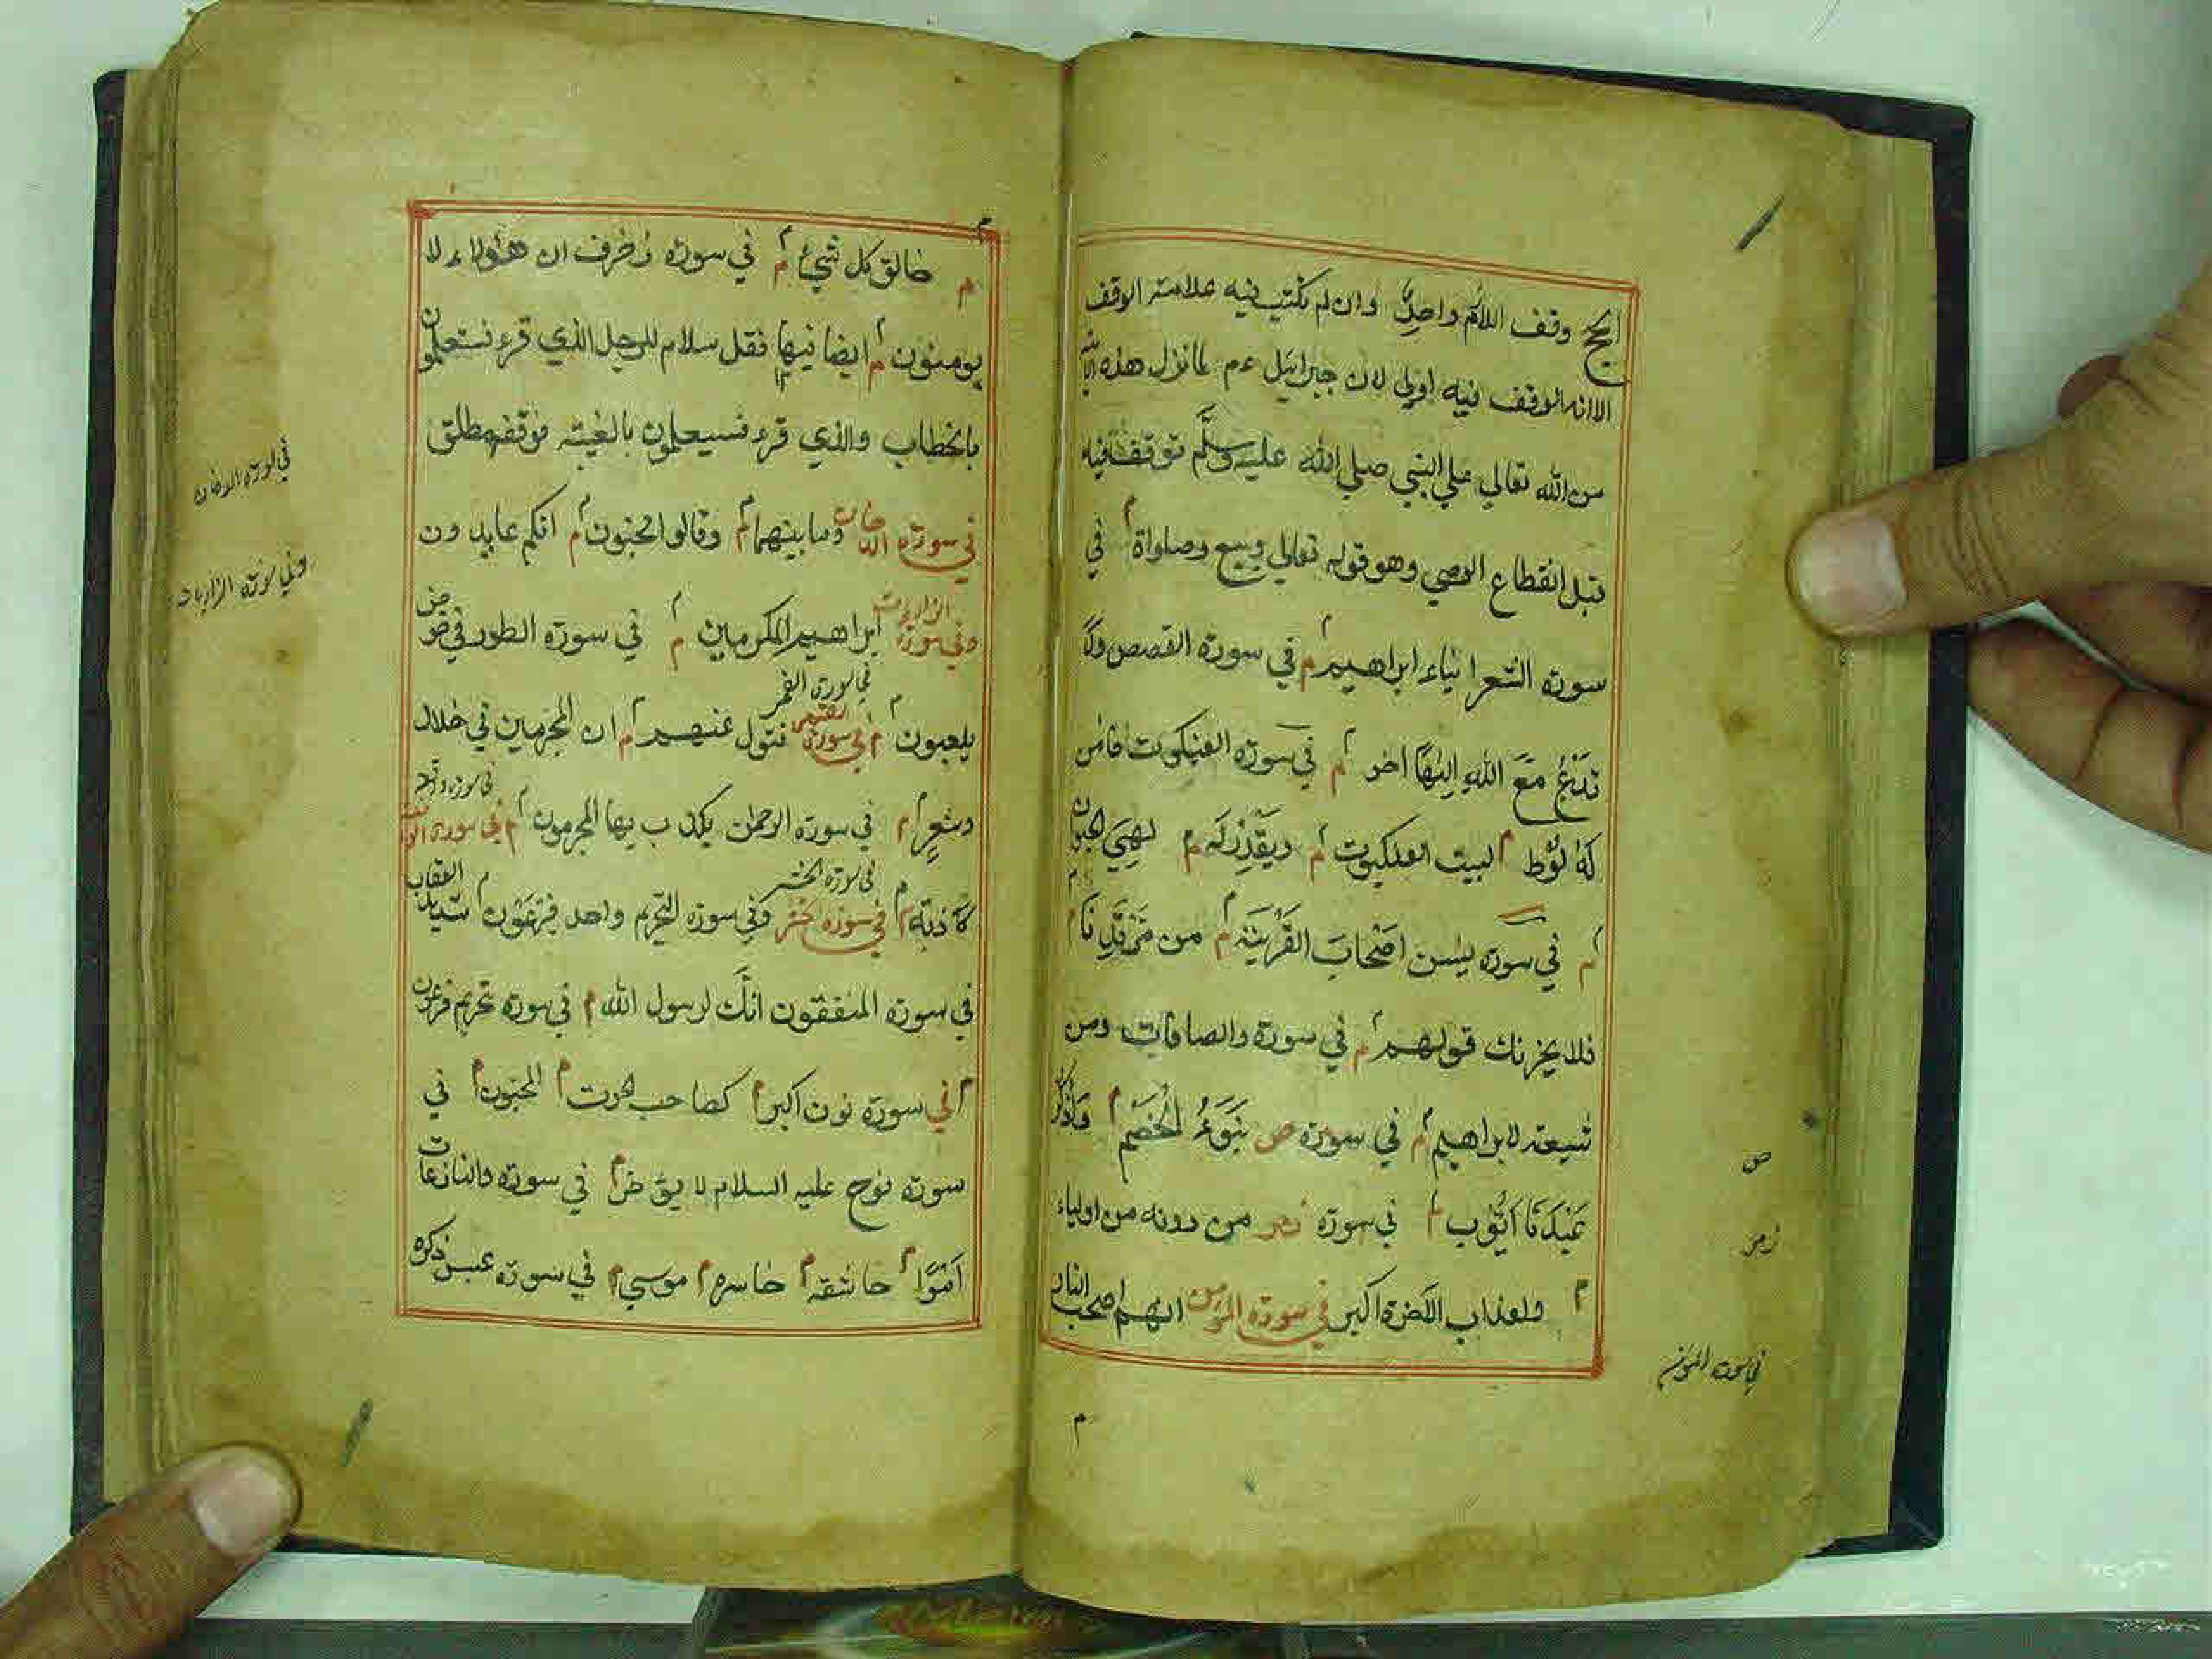 الحج وقف اللازم واحد وان لم تكتب فيه علامة الوقف
الا انه الوقف فيه اولي لان جبرائيل عم لما نزل هذه
من الله تعالي علي النبي صلي الله عليه وسلم توقف فيه
قبل انقطاع الوحي وهو قوله تعالي وبيع وصلواة م في
سورة الشعرا نباء ابراهيم م في سورة القصص ولا
تدع مع الله الها اخر م في سورة العنكبوت فامن
له لوط م البيت العنكبوت م ويقدر له م لهي الحيوان
م في سورة يسن اصحاب القرية م من مرقدنا م
فلا يحزنك قولهم م في سورة والصافات ومن
شيعته لابراهيم م في سورة ص نبؤ الخصم م واذكر
عبدنا ايوب م في سورة زمر من دونه من اولياء
م ولعذاب الاخرة اكبر في سورة المؤمن انهم اصحب النار
ص
زمر
في سورة المؤمن
م
م خالق كل شيء م في سورة زخرف ان هولاء لا
يومنون م ايضا فيها فقل سلام للرجل الذي قرء فستعلمون
بالخطاب والذي قرء فسيعلمون بالغيبة فوقفه مطلق
في سورة الدخان وما بينهما م وقالوا مجنون م انكم عايدون
وفي سورة الذاريات ابراهيم المكرمين م في سورة الطور في خوض
يلعبون م في سورة القمر فتول عنهم م ان المجرمين في ضلال
في سورة القمر
وسعر م في سورة الرحمن يكذب بها المجرمون م في سورة
كاذبة م في سورة حشر وفي سورة التحريم واحد فرعون م شديد العقاب
في سورة الحشر
في سورة المنفقون انك لرسول الله م في سورة تحريم فرعون
م في سورة نون اكبر م كصاحب الحوت م المجنون م في
سورة نوح عليه السلام لا يؤخر م في سورة والنازعات
خاشعة م خاسرة م موسي م في سورة عبس ذكره
في سورة الدخان
وفي سورة الذاريات